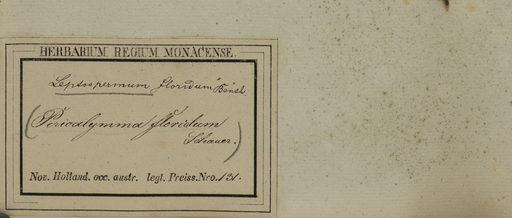 HERBARIUM REGIUM MONACENSE.
Leptospermum floridum Benth
(Pericalymma floridum
Schauer.)
Nov. Holland. occ. austr. legt. Preiss. Nro. 131.